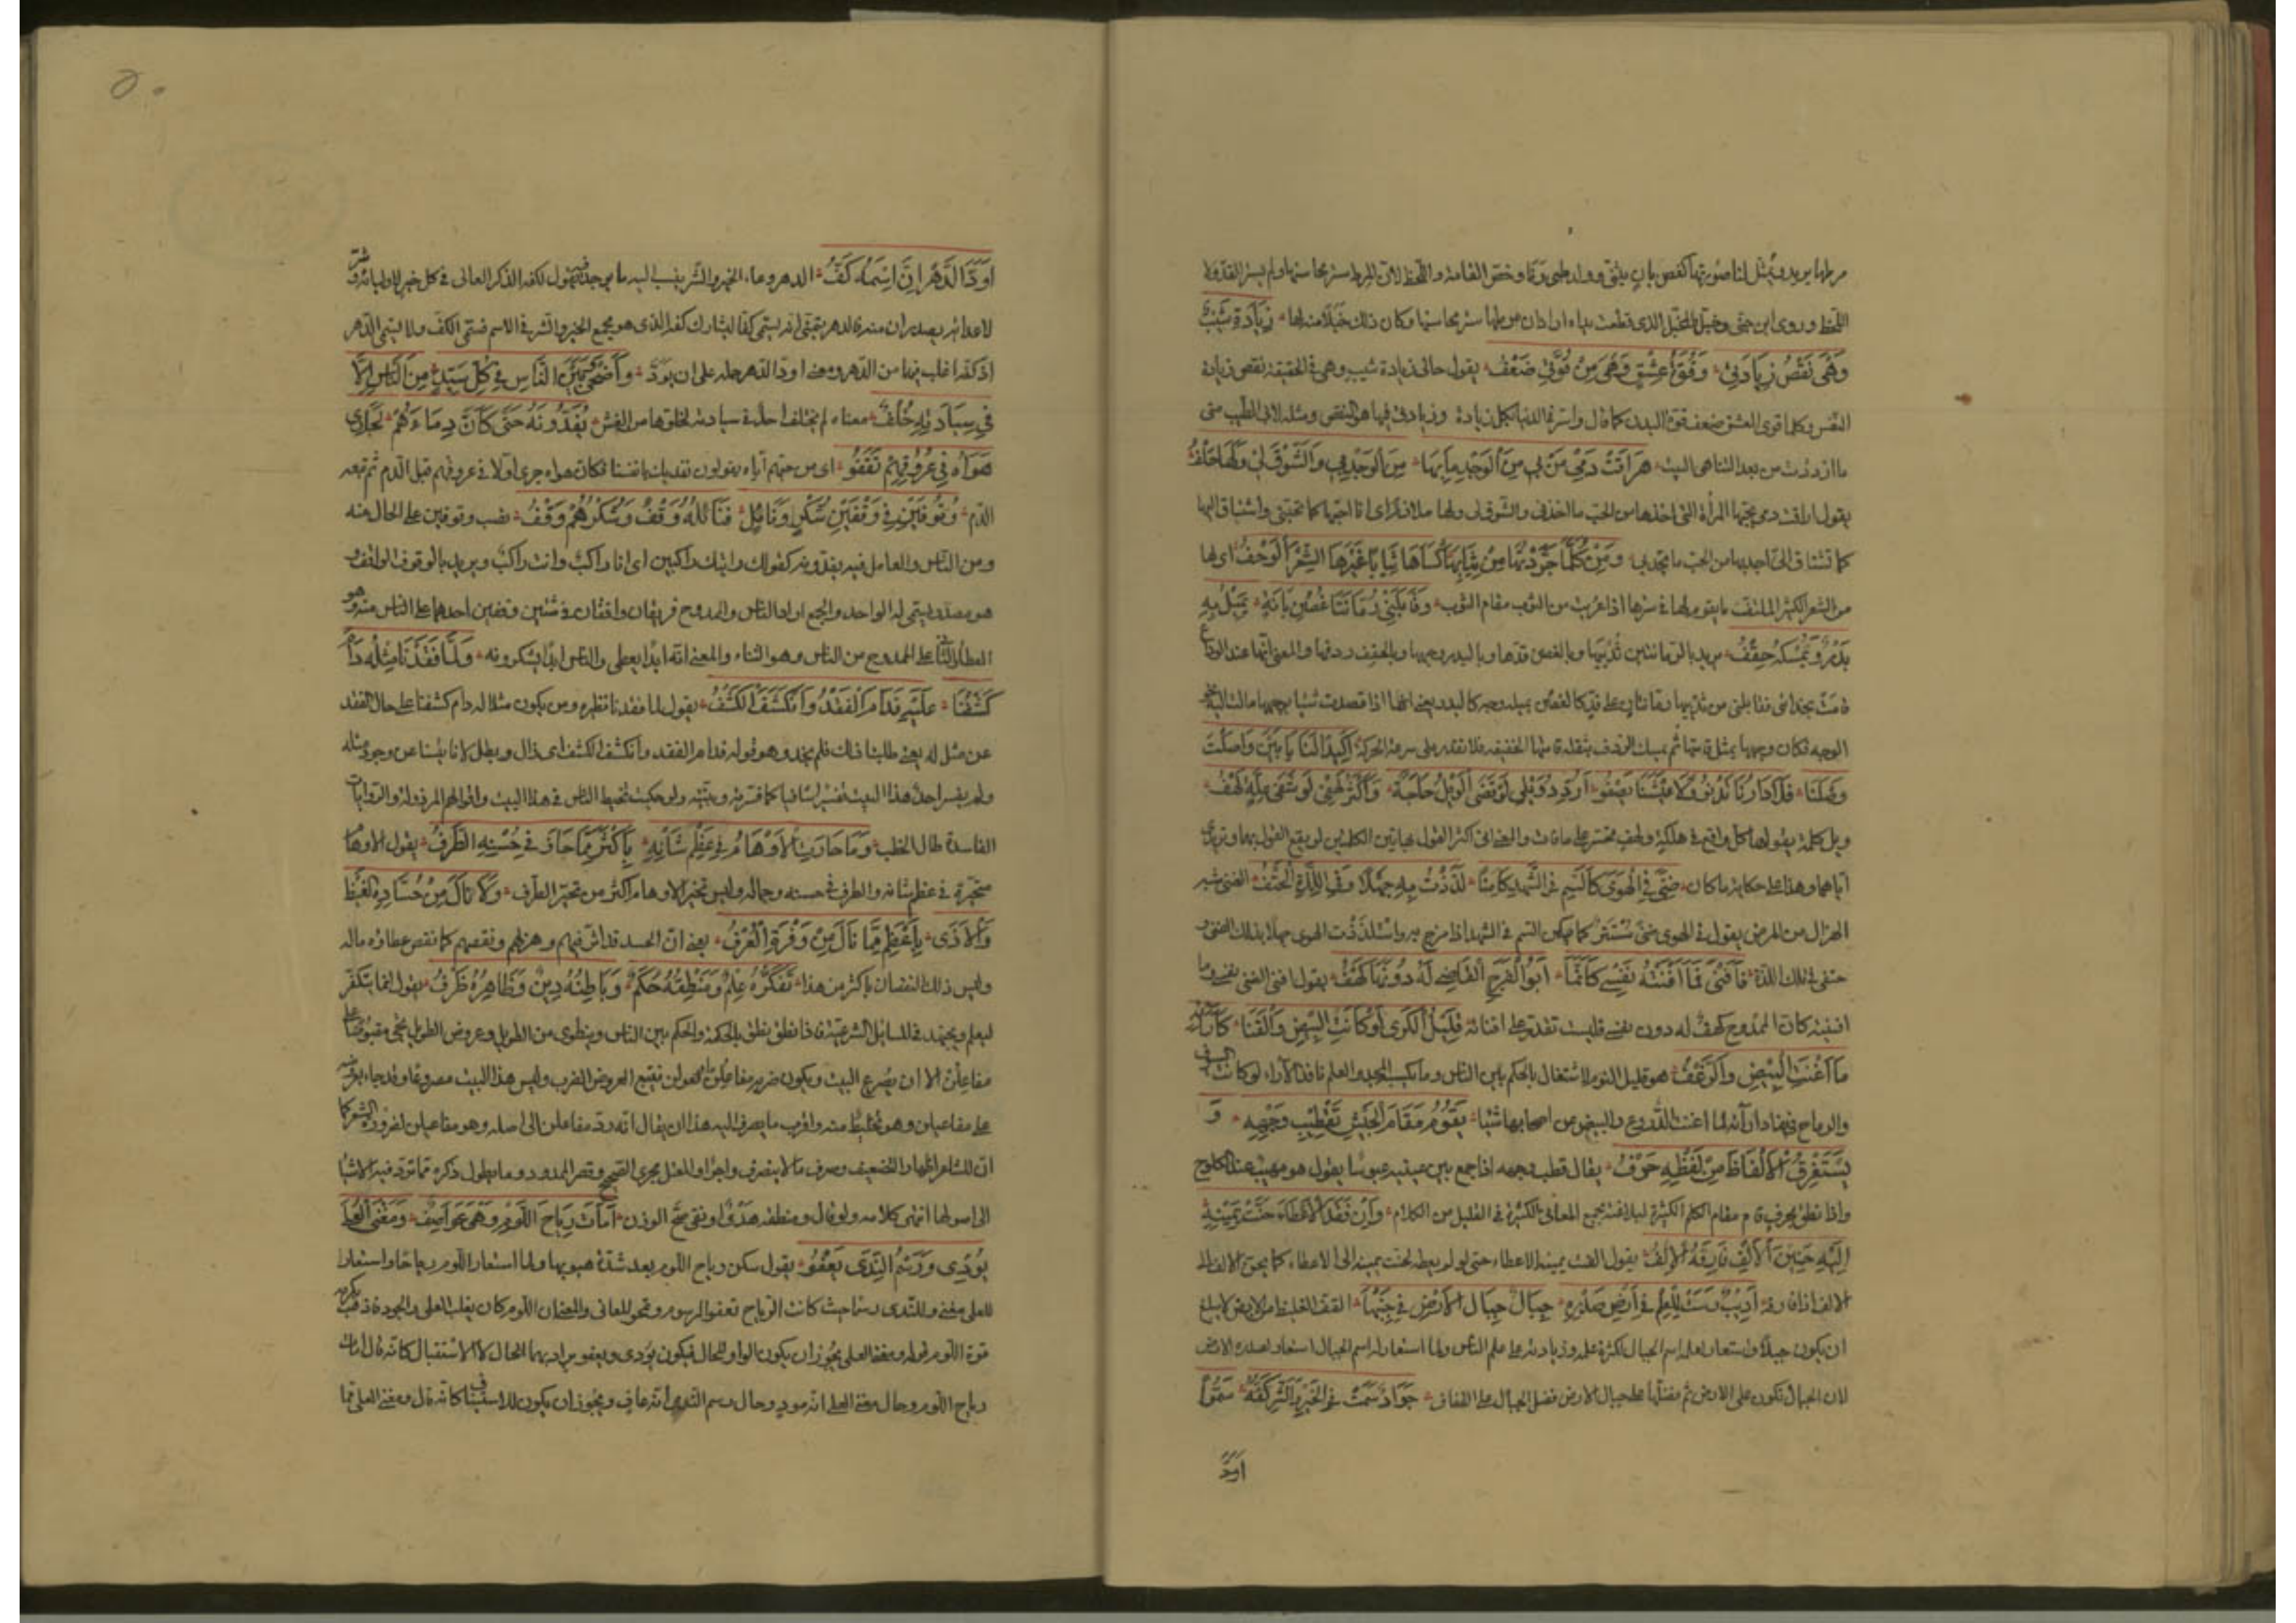 مرطها يريد ويمثل لنا صورتها كغصن بان يتثنى وولد ظبي وخص القامة واللحظ لان المرط ستر محاسنها ولم يستر القد ولا
اللحظ وروى ابن جنى وخبل المخبل الذى قطعت يداه اراد ان مرطها ستر محاسنها وكان ذلك خبلا منه لها زِيَادَةُ شَيْبٍ
وَهْيَ نَقْصُ زِيَادَتِي وَقُوَّةُ عِشْقٍ وَهْيَ مِنْ قُوَّتِي ضَعْفُ يقول حالى زيادة شيب وهى فى الحقيقة نقص زيادة
النفس وكلما قوى العشق ضعف قوة البدن كما قال واسرع الدنيا بكل زيادة وزيادتى فيها هو النقص ومثله لابى الطيب متى
ما ازددت من بعد التناهى البيت هَرَاقَتْ دَمِي مَنْ بِي مِنَ الْوَجْدِ مَا بِهَا مِنَ الْوَجْدِ بِي وَالشَّوْقُ لِي وَلَهَا حِلْفُ
يقول اراقت دمى بحبها المرأة التى اخذها من الحب ما اخذنى والشوق لى ولها ملازم اى انا احبها كما تحبنى واشتاق اليها
كما تشتاق الىّ اجد بها من الحب ما تجد بى وَمَنْ كُلَّمَا جَرَّدْتُهَا مِنْ ثِيَابِهَا كَسَاهَا ثِيَابًا غَيْرَهَا الشَّعَرُ الْوَحْفُ اى لها
من الشعر الكثير الملتف ما يقوم لها فى سترها اذا عريت من الثوب مقام الثوب وَقَابَلَنِي رُمَّانَتَا غُصْنِ بَانَةٍ يَمِيلُ بِهِ
بَدْرٌ وَيُمْسِكُهُ حِقْفُ يريد بالرمانتين ثدييها وبالغصن قدها وبالبدر وجهها وبالحقف ردفها والمعنى انها عند الوداع
قامت بحذائى فقابلنى من ثدييها رمانتان على قد كالغصن يميله وجه كالبدر يعنى انها اذا قصدت شيئا بوجهها مالت اليه نحو
الوجه فكان وجهها يمثل قامتها ثم يمسك الردف بثقله قامتها الخفيفة فلا تقدر على سرعة الحركة أَكَيْدًا لَنَا يَا بَيْنُ وَاصَلْتَ
وَصْلَنَا فَلَا دَارُنَا تَدْنُو وَلَا عَيْشُنَا يَصْفُو أُرَدِّدُ وَيْلِي لَوْ قَضَى الْوَيْلُ حَاجَةً وَأُكْثِرُ لَهْفِي لَوْ شَفَى غُلَّةً لَهْفُ
ويل كلمة يقولها كل واقع فى هلكة ولهف تحسر على ما فات والمعنى انى اكثر القول بهاتين الكلمتين لو نفع القول بهما وترديدى
اياهما وهذا على حكاية ما كان ضَنًى فِي الْهَوَى كَالسَّمِّ فِي الشَّهْدِ كَامِنًا لَذِذْتُ بِهِ جَهْلًا وَفِي اللَّذَّةِ الْحَتْفُ الضنى شبه
الهزال من المرض يقول فى الهوى ضنى مستتر كما يكمن السم فى الشهد اذا مزج به واستلذذت الهوى جهلا بذلك الضنى و
حتفى فى تلك اللذة فَأَفْنَى وَمَا أَفْنَتْهُ نَفْسِي كَأَنَّمَا أَبُو الْفَرَجِ الْقَاضِي لَهُ دُونَهَا كَهْفُ يقول افنى الضنى نفسى وما
افنيته كان الممدوح كهف له دون نفسى فليست تقدر على افنائه قَلِيلُ الْكَرَى لَوْ كَانَتِ الْبِيضُ وَالْقَنَا كَآرَائِهِ
مَا أَغْنَتِ الْبِيضُ وَالزَّغْفُ هو قليل النوم لاشتغاله بالحكم بين الناس وما يكسب المجد والعلم نافذ الآراء لو كانت السيوف
والرماح فى نفاد ارآئه لما اغنت الدروع والبيض من اصحابها شيئا يَقُومُ مَقَامَ الْجَيْشِ تَقْطِيبُ وَجْهِهِ وَ
يَسْتَغْرِقُ الْأَلْفَاظَ مِنْ لَفْظِهِ حَرْفُ يقال قطب وجهه اذا جمع بين عينيه عبوسا يقول هو مهيب عند الكلوح
واذا نطق بحرف قام مقام الكلم الكثيرة لبلاغته يجمع المعانى الكثيرة فى القليل من الكلام وَإِنْ فَقَدَ الْإِعْطَاءَ حَنَّتْ يَمِينُهُ
إِلَيْهِ حَنِينَ الْإِلْفِ فَارَقَهُ الْإِلْفُ يقول الفت يمينه الاعطاء حتى لو لم يعط لحنت يمينه الى الاعطاء كما يحن الالف الى
الالف اذا فارقه أَدِيبٌ رَسَتْ لِلْعِلْمِ فِي أَرْضِ صَدْرِهِ جِبَالٌ جِبَالُ الْأَرْضِ فِي جَنْبِهَا قُفُّ القف الغليظ من الارض لا يبلغ
ان يكون جبلا واستعار لعلمه اسم الجبال لكثرة علمه وزيادته على علم الناس ولما استعار له اسم الجبال استعار لصدره الارض
لان الجبال تكون على الارض ثم فضلها على جبال الارض فضل الجبال على القفاف جَوَادٌ سَمَتْ فِي الْخَيْرِ وَالشَّرِّ كَفُّهُ سُمُوًّا
اودّ
٥٠
أَوَدَّ الدَّهْرَ أَنَّ اسْمَهُ كَفُّ الدهر وعاء الخير والشر ينسب اليه ما يوجد فيه يقول لكفه الذكر العالى فى كل خير لاوليائه وشر
لاعدائه يصدر ان منه فالدهر يتمنى انه يسمى كفا ليشارك كفه الذى هو مجمع الخير والشر فى الاسم فتسمى الكف ولا يسمى الدهر
اذ كفه اغلب فيهما من الدهر ومعنى اودّ الدهر حمله على ان يودّ وَأَضْحَى وَبَيْنَ النَّاسِ فِي كُلِّ سَيِّدٍ مِنَ النَّاسِ إِلَّا
فِي سِيَادَتِهِ خُلْفُ معناه لم يختلف احد فى سيادته لخلوّها من الغش يُفَدُّونَهُ حَتَّى كَأَنَّ دِمَاءَهُمْ لِجَارِي
هَوَاهُ فِي عُرُوقِهِمْ تَقْفُو اى من حبهم اياه يقولون نفديك بانفسنا فكان هواه جرى اولا فى عروقهم قبل الدم ثم تبعه
الدم وُقُوفَيْنِ فِي وَقْفَيْنِ شُكْرٍ وَنَائِلٍ فَنَائِلُهُ وَقْفٌ وَشُكْرُهُمْ وَقْفُ نصب وقوفين على الحال منه
ومن الناس والعامل فيه يفدونه كقولك رايتك راكبين اى انا راكب وانت راكب ويريد بالوقوف الواقف و
هو مصدر يسمى به الواحد والجمع اراد الناس والممدوح فريقان واقفان فى شيئين وقفين احدهما على الناس منه وهو
العطاء والثانى على الممدوح من الناس وهو الثناء والمعنى انه ابدا يعطى والناس ابدا يشكرونه وَلَمَّا فَقَدْنَا مِثْلَهُ دَامَ
كَشْفُنَا عَلَيْهِ فَدَامَ الْفَقْدُ وَانْكَشَفَ الْكَشْفُ يقول لما فقدنا نظيره ومن يكون مثلا له دام كشفنا على حال الفقد
عن مثل له يعنى طلبنا ذاك فلم نجد وهو قوله فدام الفقد وانكشف الكشف اى زال وبطل لانا يئسنا عن وجود مثله
ولم يفسر احد هذا البيت تفسيرا شافيا كما فسرته وبينته ولو حكيت تخبط الناس فى هذا البيت واقوالهم المرذولة والروايات
الفاسدة طال الخطب وَمَا حَارَتِ الْأَوْهَامُ فِي عِظْمِ شَأْنِهِ بِأَكْثَرَ مِمَّا حَارَ فِي حُسْنِهِ الطَّرْفُ يقول الاوهام
متحيرة فى عظم شانه والطرف فى حسنه وجماله وليس تحير الاوهام اكثر من تحير الطرف وَلَا نَالَ مِنْ حُسَّادِهِ الْغَيْظُ
وَالْأَذَى بِأَعْظَمَ مِمَّا نَالَ مِنْ وَفْرِهِ الْعُرْفُ يعنى ان الحسد قد اثر فيهم وهزلهم ونقصهم كما نقص عطاؤه ماله
وليس ذلك النقصان باكثر من هذا تَفَكُّرُهُ عِلْمٌ وَمَنْطِقُهُ حُكْمٌ وَبَاطِنُهُ دِينٌ وَظَاهِرُهُ ظَرْفُ يقول انما يتفكر
ليعلم ويجتهد فى المسائل الشرعية فاذا نطق نطق بالحكمة والحكم بين الناس وينطوى من الطويل وعروض الطويل تجئ مقبوضا على
مفاعلن الا ان يصرع البيت ويكون ضربه مفاعيلن او فعولن فتتبع العروض الضرب وليس هذا البيت مصرعا وقد جاء بعروضه
على مفاعيلن وهو تخليط منه واقرب ما يصرف اليه هذا ان يقال انه رد مفاعلن الى اصله وهو مفاعيلن لضرورة الشعر كما
ان للشاعر اظهار التضعيف وصرف ما لا ينصرف واجراء المعتل مجرى الصحيح وقصر الممدود وما يطول ذكره مما ترد فيه الاشياء
الى اصولها انتهى كلامه ولو قال ومنطقه هدًى او تقى صح الوزن أَمَاتَ رِيَاحَ اللُّؤْمِ وَهْيَ عَوَاصِفٌ وَمَغْنَى الْعُلَى
يُودِي وَرَسْمُ النَّدَى يَعْفُو يقول سكن رياح اللوم بعد شدة هبوبها ولما استعار للوم رياحا واستعار
للعلى مغنى وللندى رسما حيث كانت الرياح تعفو الرسوم وتمحو المغانى والمعنى ان اللوم كان يغلب العلى والجود فاذهب بكرمه
قوة اللوم قوله ومغنى العلى يجوز ان يكون الواو للحال فيكون يودى ويعفو يراد بهما الحال لا الاستقبال كانه قال امات
رياح اللوم وحال مغنى العلى انه مود وحال رسم الندى انه عاف ويجوز ان يكون للاستيناف كانه قال ومغنى العلى مما